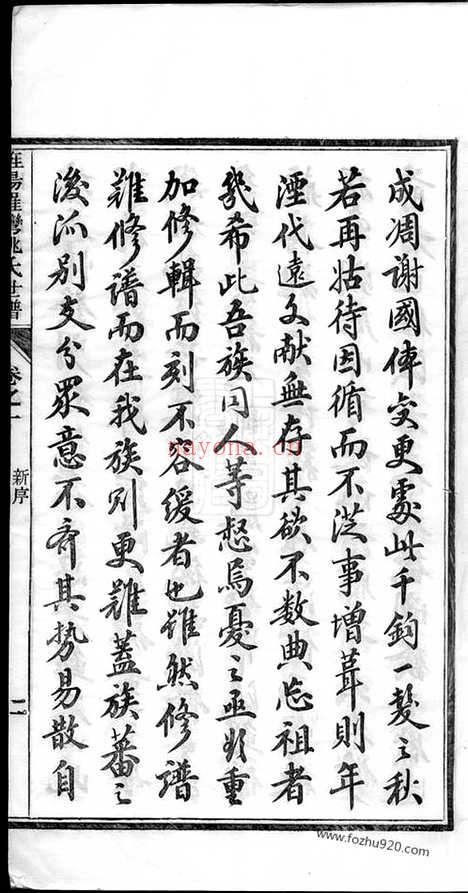 成凋謝國體變更處此千鈞一髮之秋
若再姑待因循而不從事增葺則年
湮代遠文献無存其欲不数典忘祖者
幾希此吾族同人等惄焉憂之亟欲重
加修輯而刻不容緩者也雖然修譜
難修譜而在我族則更難蓋族蕃之
後派別支分眾意不齊其势易散自
灣姚氏世譜
卷之一
新序
二
nayona.cn
www.fozhu920.com